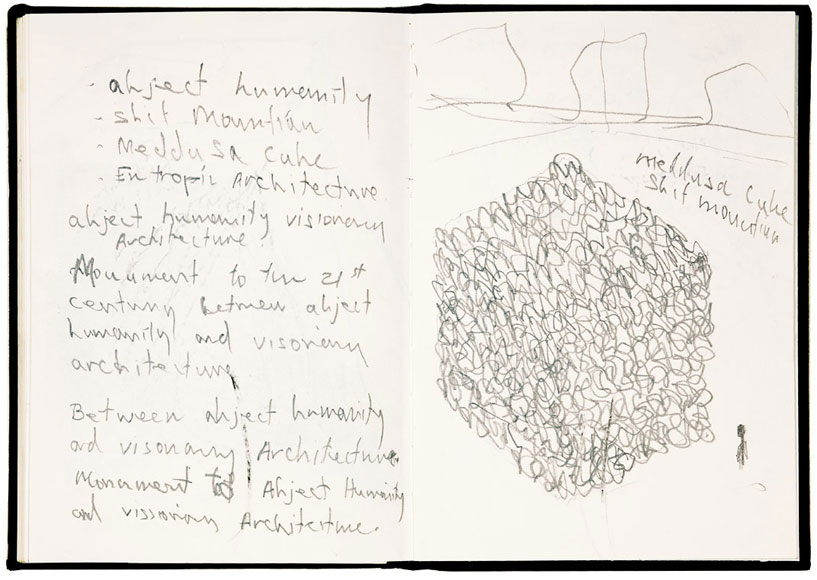 - abject humanity
- shit Mountian
- Meddusa cube
- Entropic Architecture
abject humanity visionary
Architecture.
Monument to the 21st
century between abject
humanity and visionary
architecture
Between abject humanity
ad visionary Architecture.
Monament to Abject Humanity
and vissoriany Architecture.
meddusa cube
shit mountian